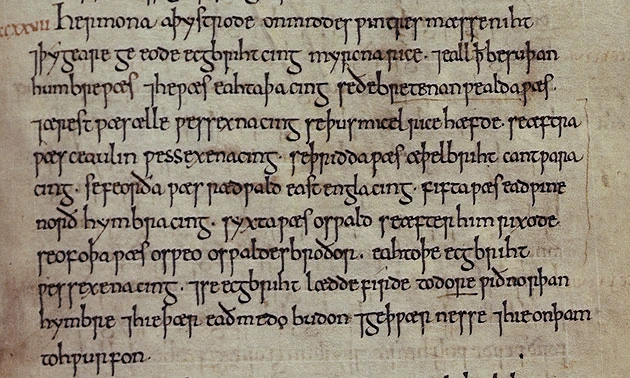 ccxxvii Her mona aþystrode on middes ƿintres mæsse niht
⁊ þy geare ge eode ecgbriht cing myrcna rice· ⁊ eall ꝥ be suþan
humbre ƿæs ⁊ he ƿæs eahtaþa cing se ðe bretenanƿealda ƿæs·
⁊ ærest ƿæs ælle ƿessexna cing se þus micel rice hæfde· se æftra
ƿæs ceaulin ƿessexena cing· se þridda ƿæs æþelbriht cantƿara
cing· se feorða ƿæs rædƿald east engla cing· fifta ƿæs eadƿine
norð hymbra cing· syxta ƿæs osƿald se æfter him rixode·
seofoþa ƿæs osƿeo osƿaldes broðor· eahtoþe ecgbriht
ƿessexena cing· ⁊ se ecgbriht lædde firde to dore ƿið norþan
hymbre ⁊ hie þær eaðmedo budon ⁊ geþƿærnesse ⁊ hie on þam
tohƿurfon·